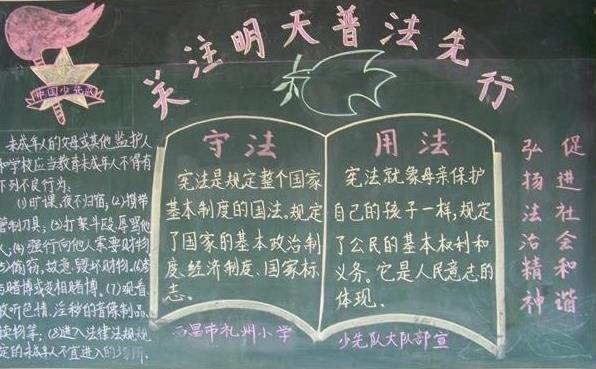 关注明天普法先行
中国少先队
未成年人的父母或其他监护人
和学校应当教育未成年人不得有
下列不良行为:
(1)旷课、夜不归宿,(2)携带
管制刀具;(3)打架斗殴、辱骂他
人;(4)强行向他人索要财物
(5)偷窃、故意毁坏财物,(6)参
与赌博或变相赌博,(7)观看
收听色情、淫秽的音像制品、
读物等;(8)进入法律法规规
定的未成年人不宜进入的场所.
守法
宪法是规定整个国家
基本制度的国法.规定
了国家的基本政治制
度、经济制度、国家标
志.
西昌市礼州小学
用法
宪法就象母亲保护
自己的孩子一样,规定
了公民的基本权利和
义务。它是人民意志的
体现.
少先队大队部宣
弘扬法治精神
促进社会和谐